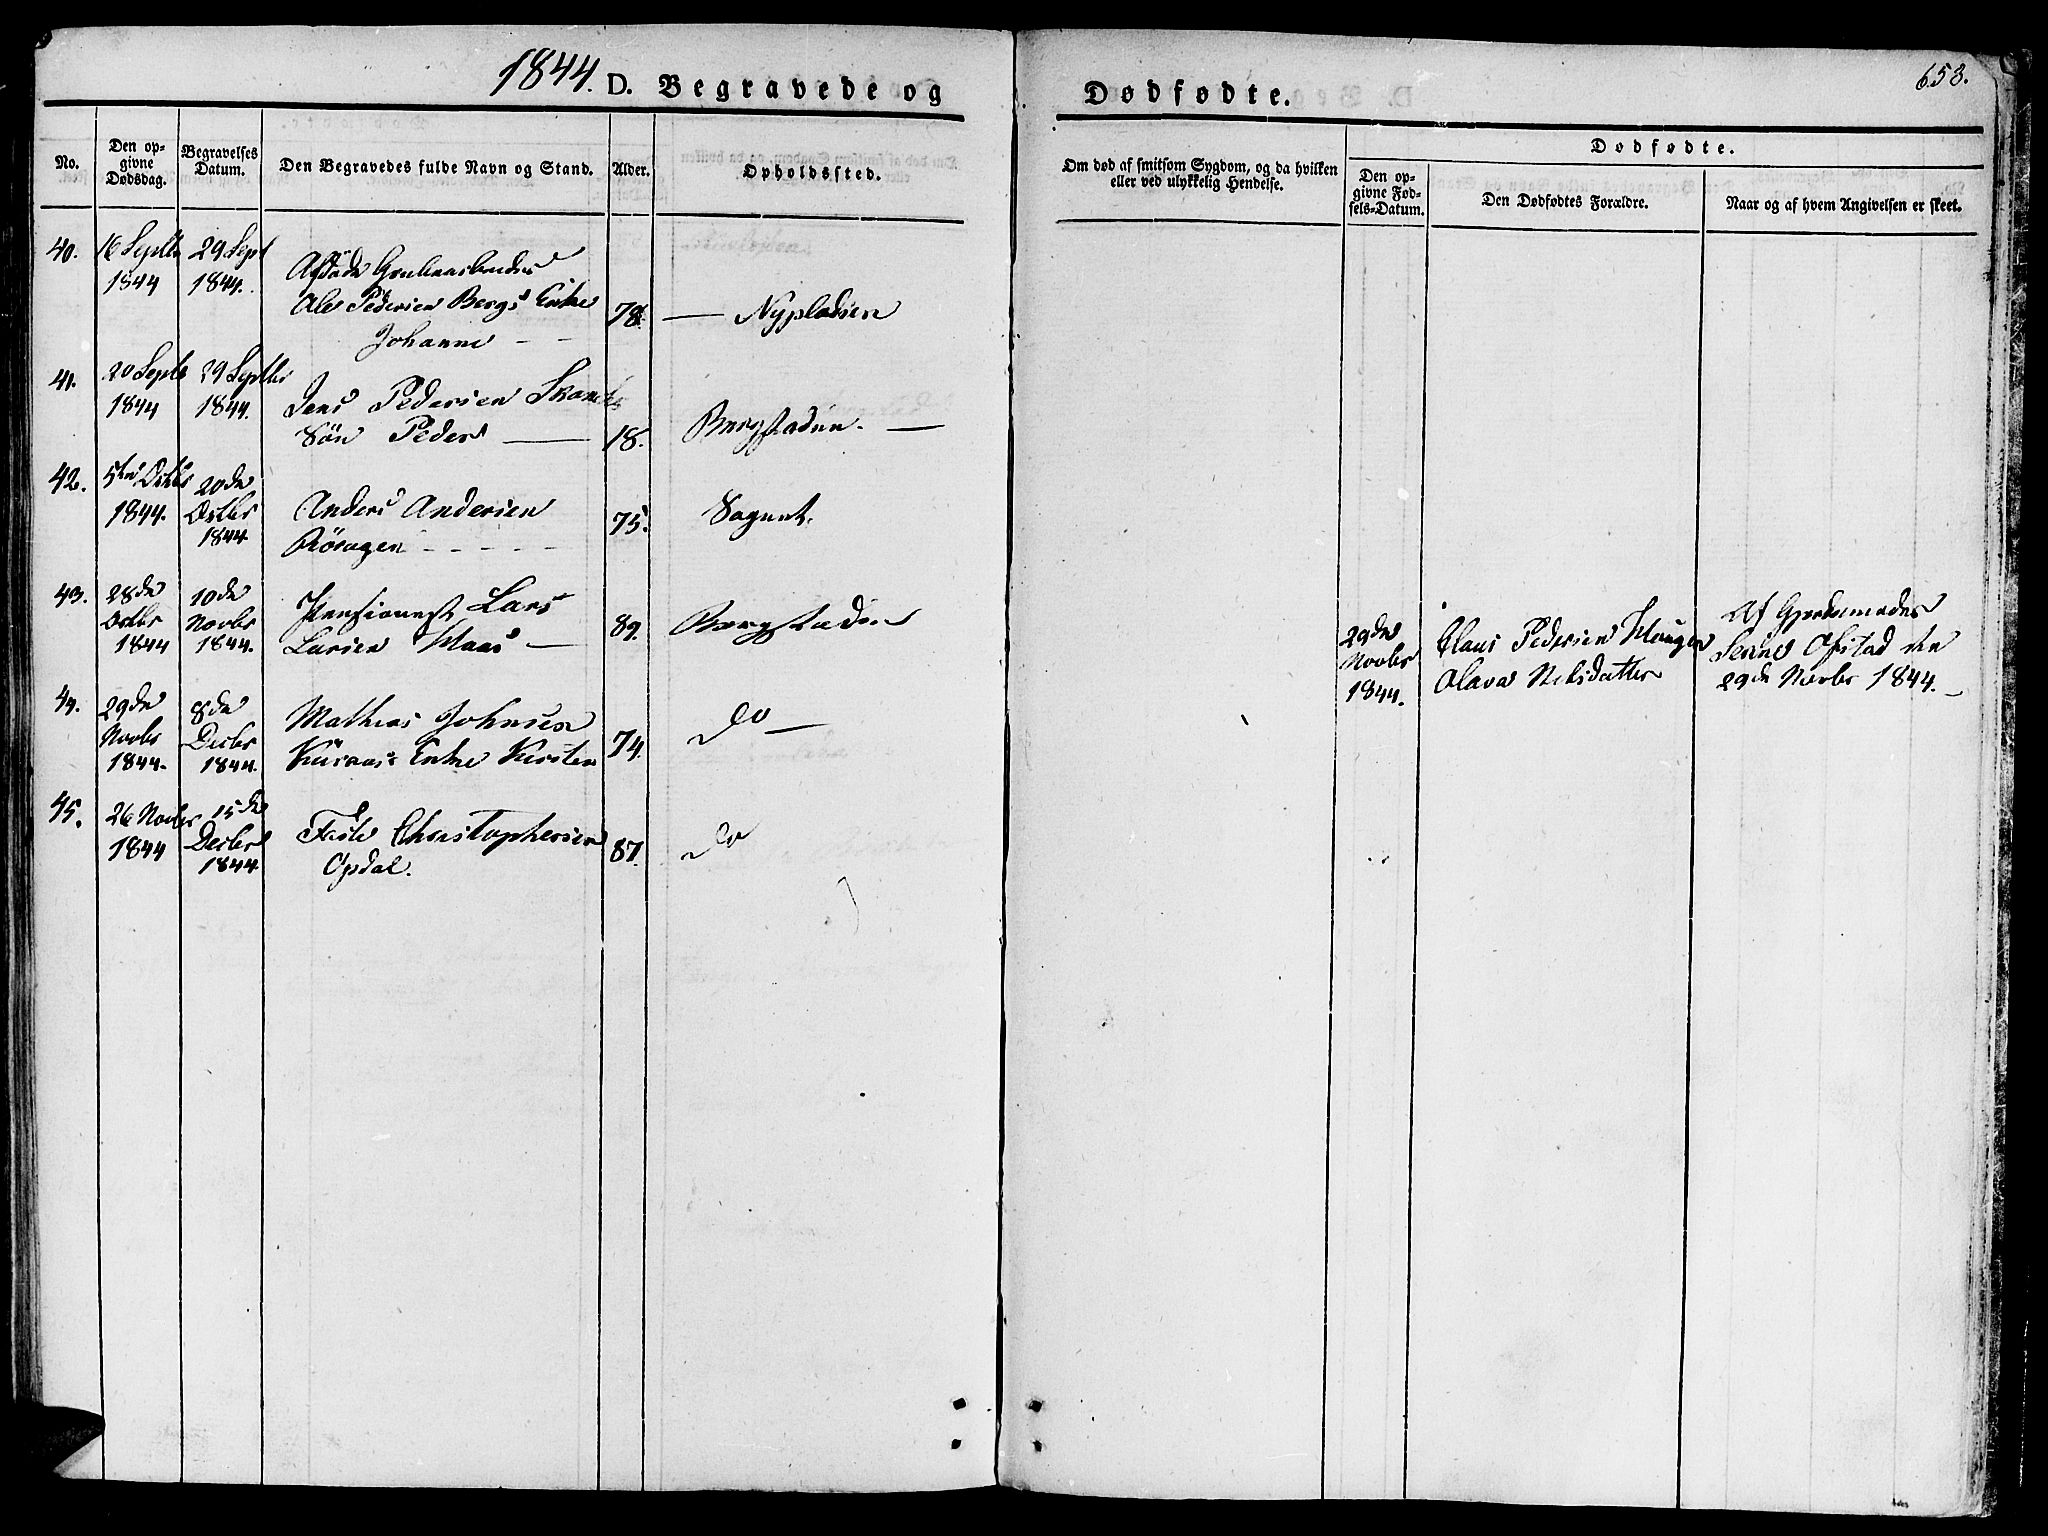 1844. D. Begravede og
Dødfødte.
658.
No.
Den op-
givne
Dødsdag.
Begravelses
Datum.
Den Begravedes fulde Navn og Stand.
Alder.
Opholdssted.
Om død af smitsom Sygdom, og da hvilken
eller ved ulykkelig Hendelse.
Dødfødte.
Den op-
givne Fød-
sels-Datum.
Den Dødfødtes Forældre.
Naar og af hvem Angivelsen er skeet.
40. 16 Septbr 29 Sept
1844 1844.
Afdøde
Ole Pedersen Bergs Enke 78. — Nypladsen
Johanne - -
41. 20 Septb 29 Septbr
1844 1844. Jens Pedersen
Søn Peder — 18. Bergstaden. —
42. 5te Octbr 20de
1844. Octbr Anders Andersen 75. Saguet.
1844. Røragen - - - - -
43. 28de 10de
Octbr Novbr Pensionest Lars 89. Bergstaden
1844 1844. Larsen Maas —
44. 29de 8de
Novbr Decbr Mathias Johnsen 74. Do —
1844. 1844. Kuraas Enke Kirsten
45. 26 Novbr 15de
1844 Decbr Faste Christophersen 87. Do
1844 Opdal.
29de
Novbr
1844.
Claus Pedersen Haugen
Olava Nilsdatter
Af Gjordemoder
Ofstad den
29de Novbr 1844. —